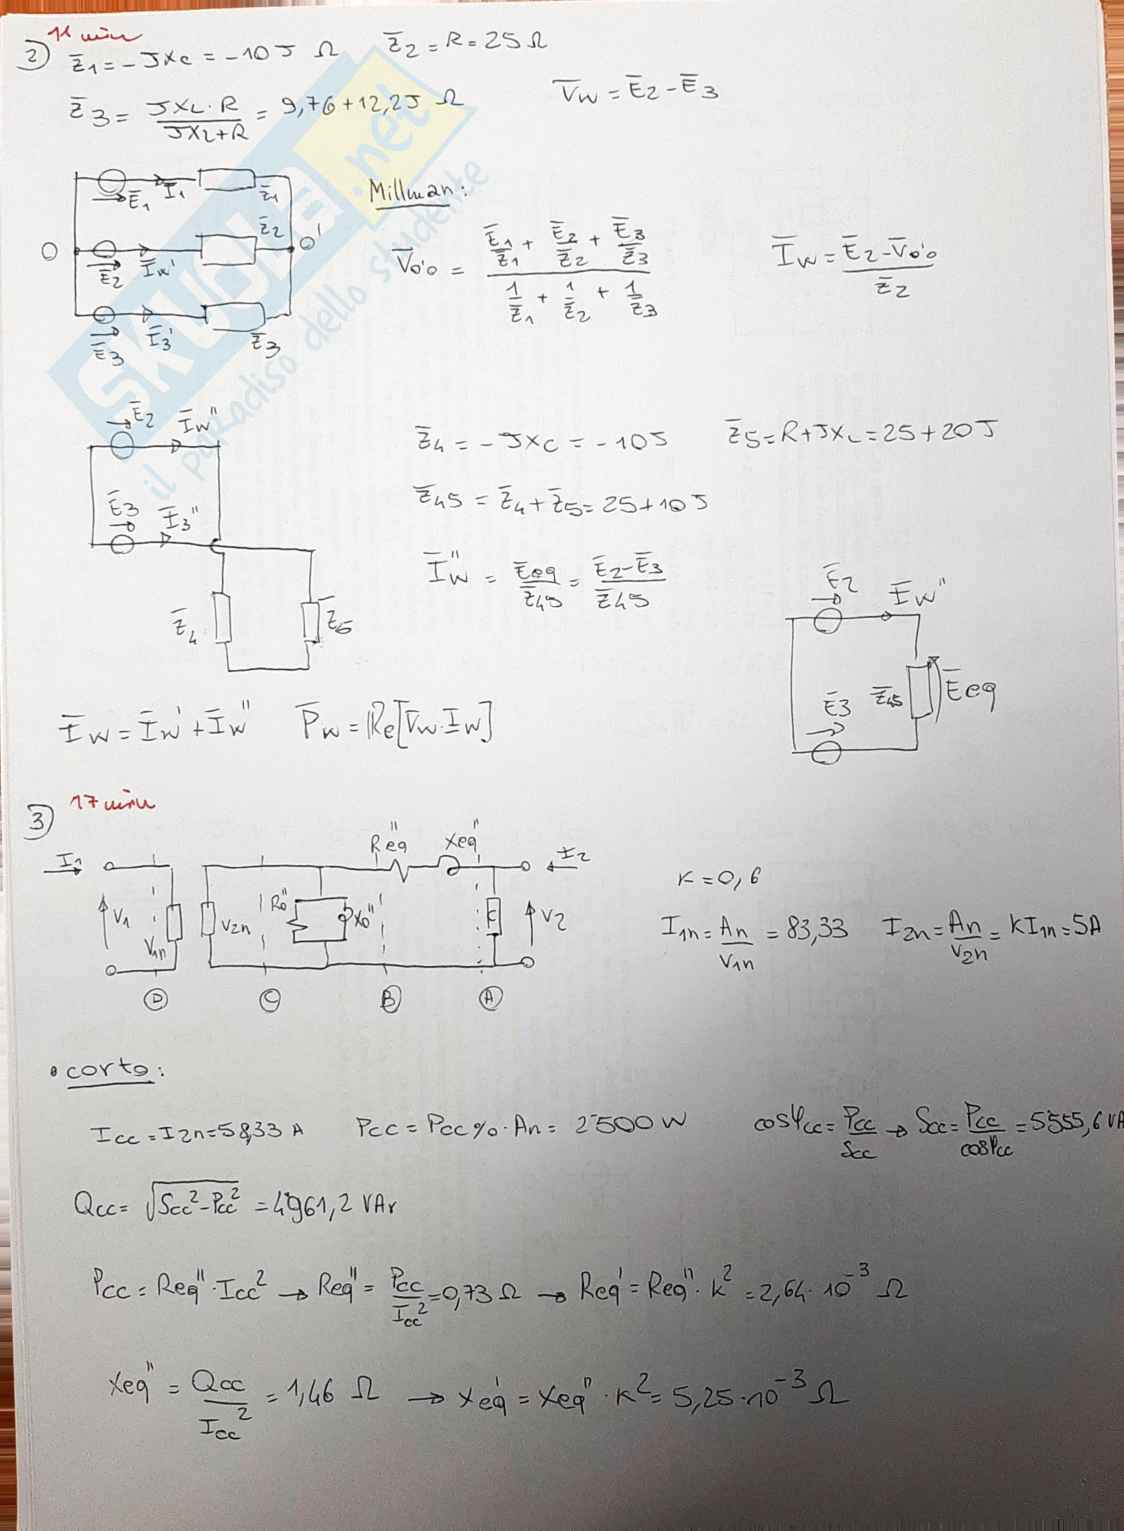 14 min
2) Z̅1 = -JXc = -10J Ω Z̅2 = R = 25Ω
Z̅3 = JXL·R / JXL+R = 9,76+12,2J Ω V̅w = E̅2 - E̅3
E̅1 I̅1 Z̅1
Millman:
O E̅2 I̅w' Z̅2 O'
E̅3 I̅3' Z̅3
V̅o'o = (E̅1/Z̅1 + E̅2/Z̅2 + E̅3/Z̅3) / (1/Z̅1 + 1/Z̅2 + 1/Z̅3) I̅w = E̅2-V̅o'o / Z̅2
E̅2 I̅w''
E̅3 I̅3''
Z̅4 Z̅5
Z̅4 = -JXc = -10J Z̅5 = R+JXL = 25+20J
Z̅45 = Z̅4+Z̅5 = 25+10J
I̅w'' = E̅eq/Z̅45 = E̅2-E̅3/Z̅45
E̅2 I̅w''
E̅3 Z̅45 E̅eq
I̅w = I̅w' + I̅w'' P̅w = Re[V̅w·I̅w]
17 min
3)
I1 Req'' Xeq'' I2
V1 V1n V2n Ro'' Xo'' V2
D C B A
K = 0,6
I1n = An/V1n = 83,33 I2n = An/V2n = KI1n = 5A
• corto:
Icc = I2n = 58,33 A Pcc = Pcc%·An = 2'500 W cosφcc = Pcc/Scc → Scc = Pcc/cosφcc = 5'555,6 VA
Qcc = √Scc²-Pcc² = 4'961,2 VAr
Pcc = Req''·Icc² → Req'' = Pcc/Icc² = 0,73 Ω → Req' = Req''·k² = 2,64·10⁻³ Ω
Xeq'' = Qcc/Icc² = 1,46 Ω → Xeq' = Xeq''·K² = 5,25·10⁻³ Ω
SKUOLA.net
il paradiso dello studente